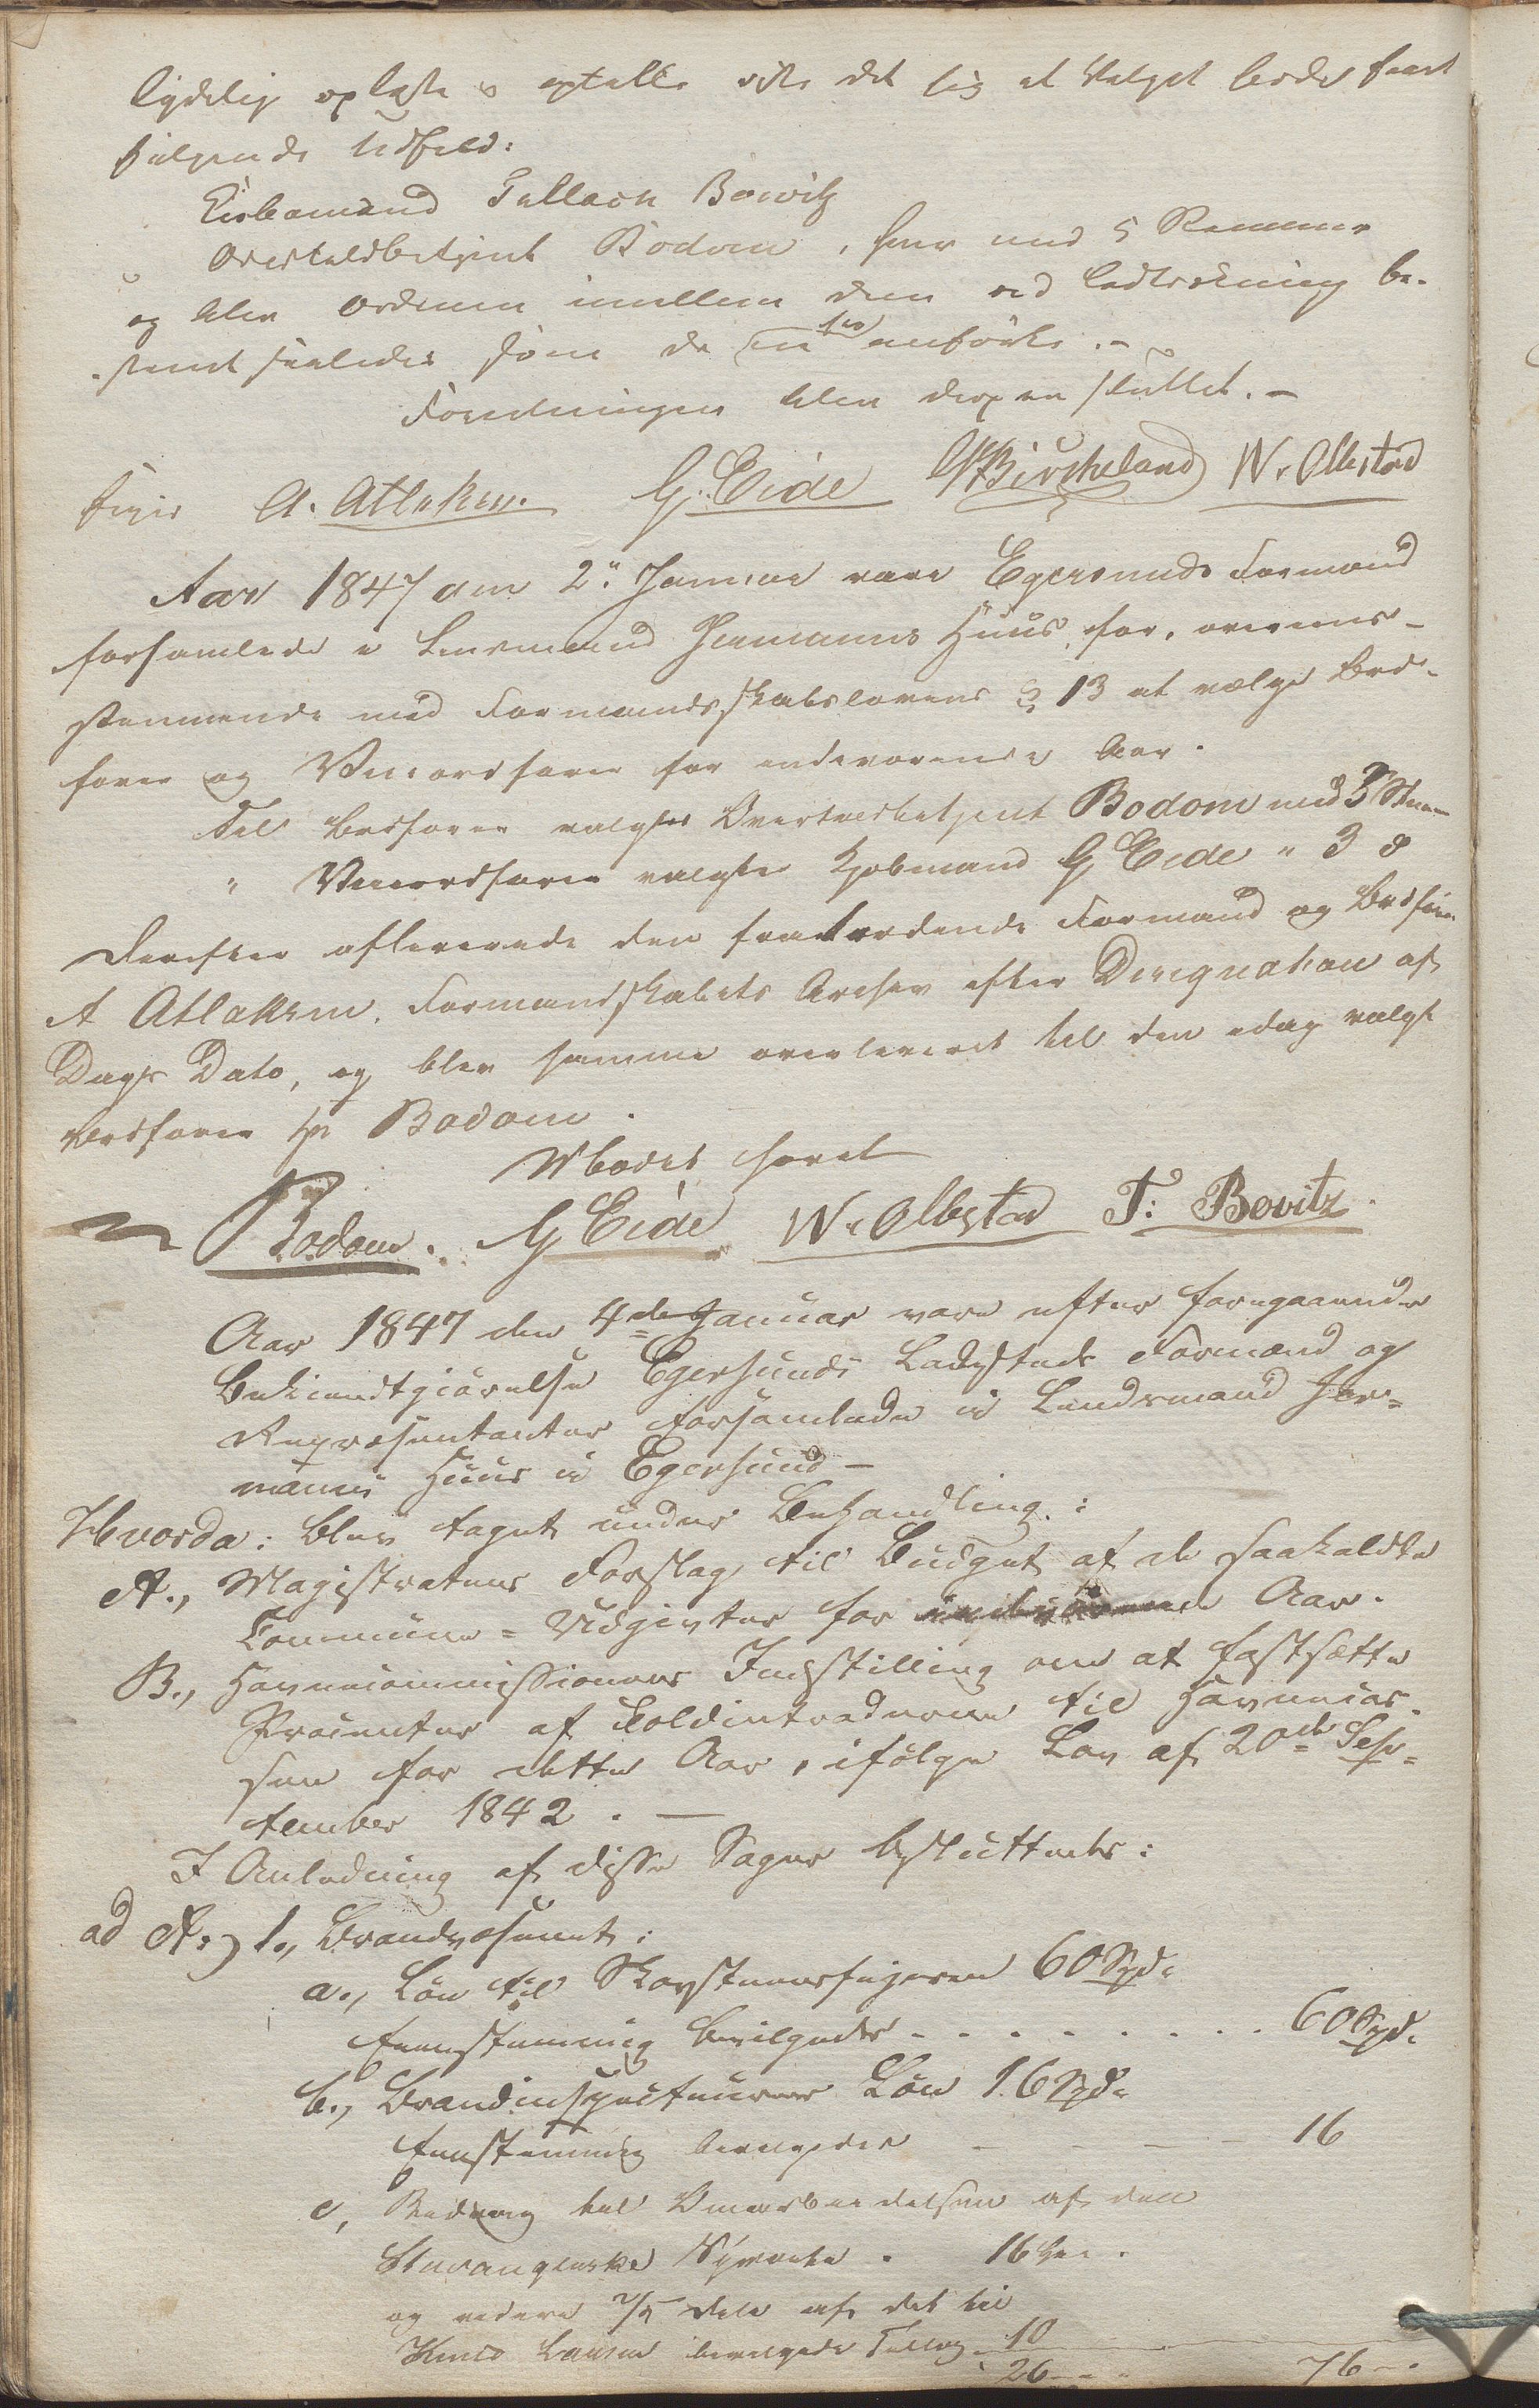 lydelig oplæste & optalte viste det sig at Valget havde faaet
følgende Udfald:
Kjøbmand Tellach Bowitz
Overtoldbetjent Bodom, hver med 5 Stemmer
og blev Ordenen imellem dem ved Lodtrækning be-
stemt saaledes som de ere anførte. -
Forretningen blev derpaa sluttet. -
A. Atlaksen. G. Eide Birckeland W. Olbstad
Aar 1847 den 2. Januar vare Egersunds Formænd
forsamlede i Lensmand Hermanns Huus, for, overeens-
stemmende med Formandsskabslovens § 13 at vælge Ord-
fører og Viceordfører for indeværende Aar.
Til Ordfører valgtes Overtoldbetjent Bodom med 3 Stem-
" Viceordfører valgtes Kjøbmand G Eide " 3
Derefter afleverede den fratrædende Formand og Ordfører
A Atlaksen, Formandskabets Archiv efter Designation af
Dags Dato, og blev samme overleveret til den idag valgte
Ordfører Hr Bodom.
Mødet hævet
Bodom. G Eide W. Olbstad T: Bovitz.
Aar 1847 den 4de Januar vare efter foregaaende
Bekiendtgiørelse Egersunds Ladesteds Formænd og
Repræsentanter forsamlede i Lendsmand Her-
manns Huus i Egersund -
Hvorda: blev taget under Behandling:
A., Magistratens Forslag til Budget af de saakaldte
Commune-Udgivter for indeværende Aar.
B., Havnecommissionens Indstilling om at fastsætte
Procenter af Toldintraderne til Havnecas-
sen for dette Aar, ifølge Lov af 20de Sep-
tember 1842. -
I Anledning af disse Sager besluttedes:
ad A., 1., Brandvæsenet:
a., Løn til Skorsteensfeieren 60 Spd.
Eenstemmig bevilgedes - - - - - - - - 60 Spd.
b., Brandinspecteurens Løn 16 Spd.
Eenstemmig bevilgedes - - - - 16
c, Bidrag til Omarbeidelsen af den
Stavangerske Sprøite. 16
og videre 2/5 Dele af det til
Knud Larsen bevilgede Tillæg 10
26 - - 76 - -